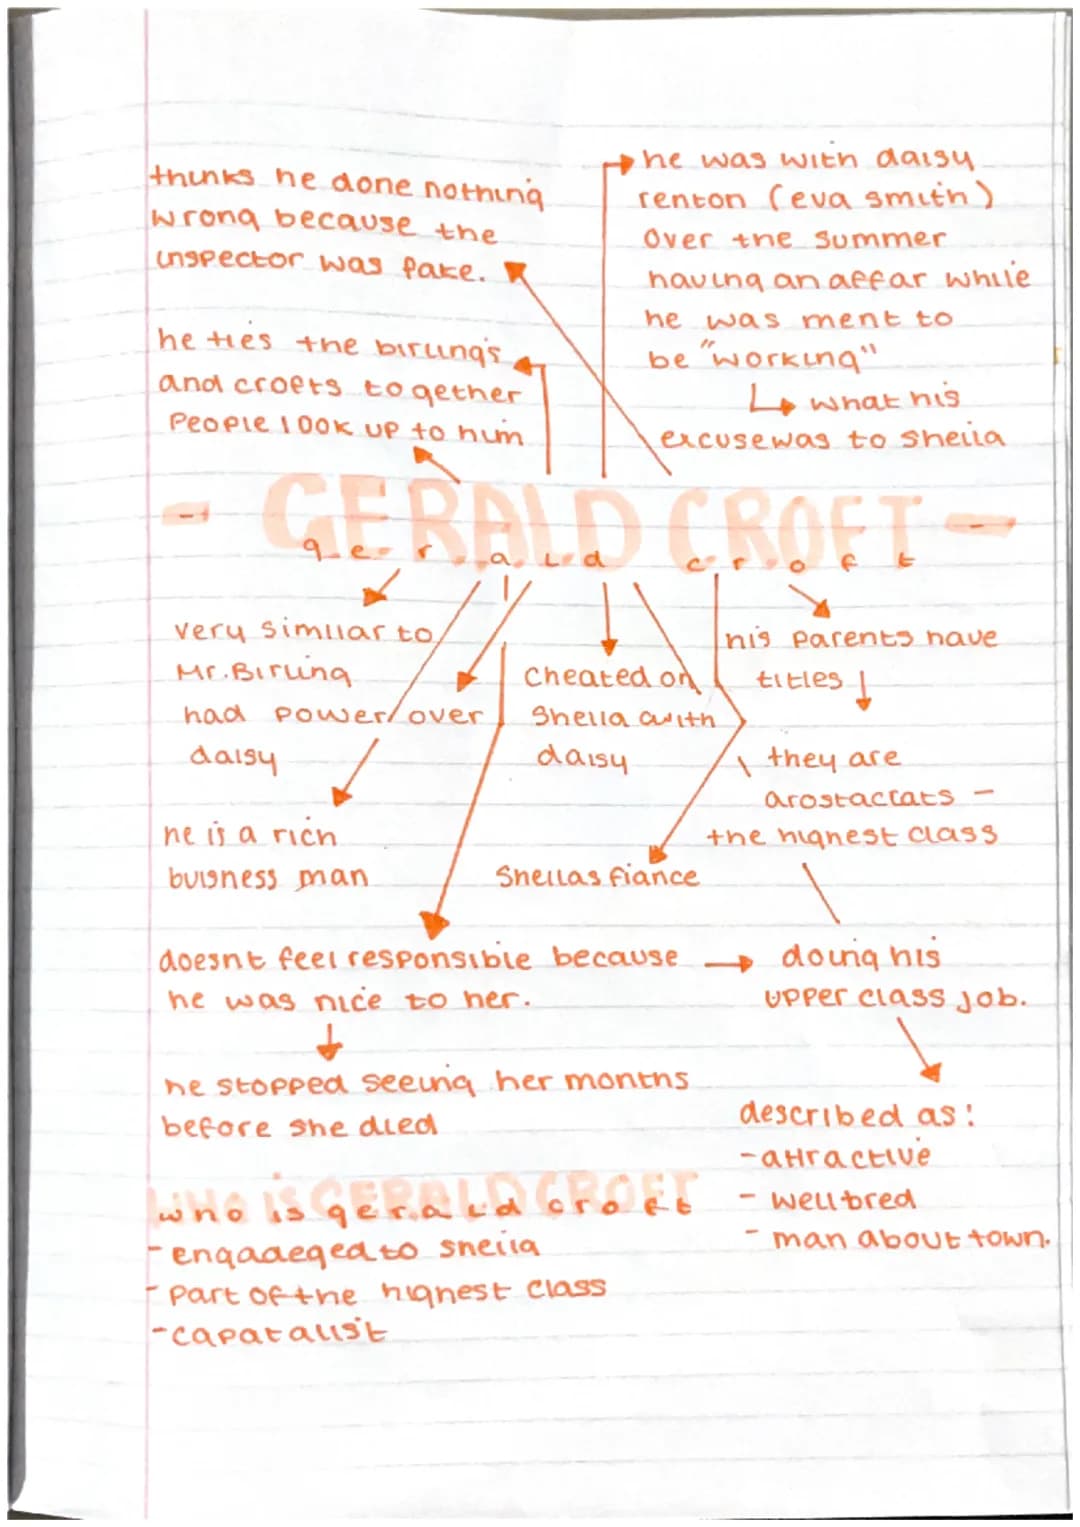 thinks he done nothing
wrong because the
inspector was fake.
he was with daisy
renton (eva smith)
over the summer
having an affar while
he was ment to
be "working"
what his
excuse was to sheila
he ties the birling's
and crofts together
People look up to him
- GERALD CROFT -
gerald croft
very similar to
Mr. Birling
had power over
daisy
he is a rich
buisness man
cheated on
Sheila with
daisy
Sheilas fiance
his parents have
titles
they are
arostaccats -
the highest class
doesnt feel responsible because
he was nice to her.
he stopped seeing her months
before she died
doing his
upper class job.
described as:
- attractive
- well bred
- man about town.
WHO IS GERALD CROFT
who is gerald croft
- engadeged to sheila
- part of the highest class
- capatalist